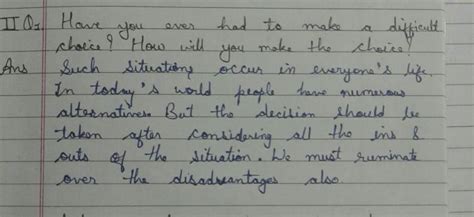 II Q1. Have you ever had to make a difficult
choice? How will you make the choice?
Ans Such situations occur in everyone's life.
In today's world people have numerous
alternatives. But the decision should be
taken after considering all the ins &
outs of the situation. We must ruminate
over the disadvantages also.